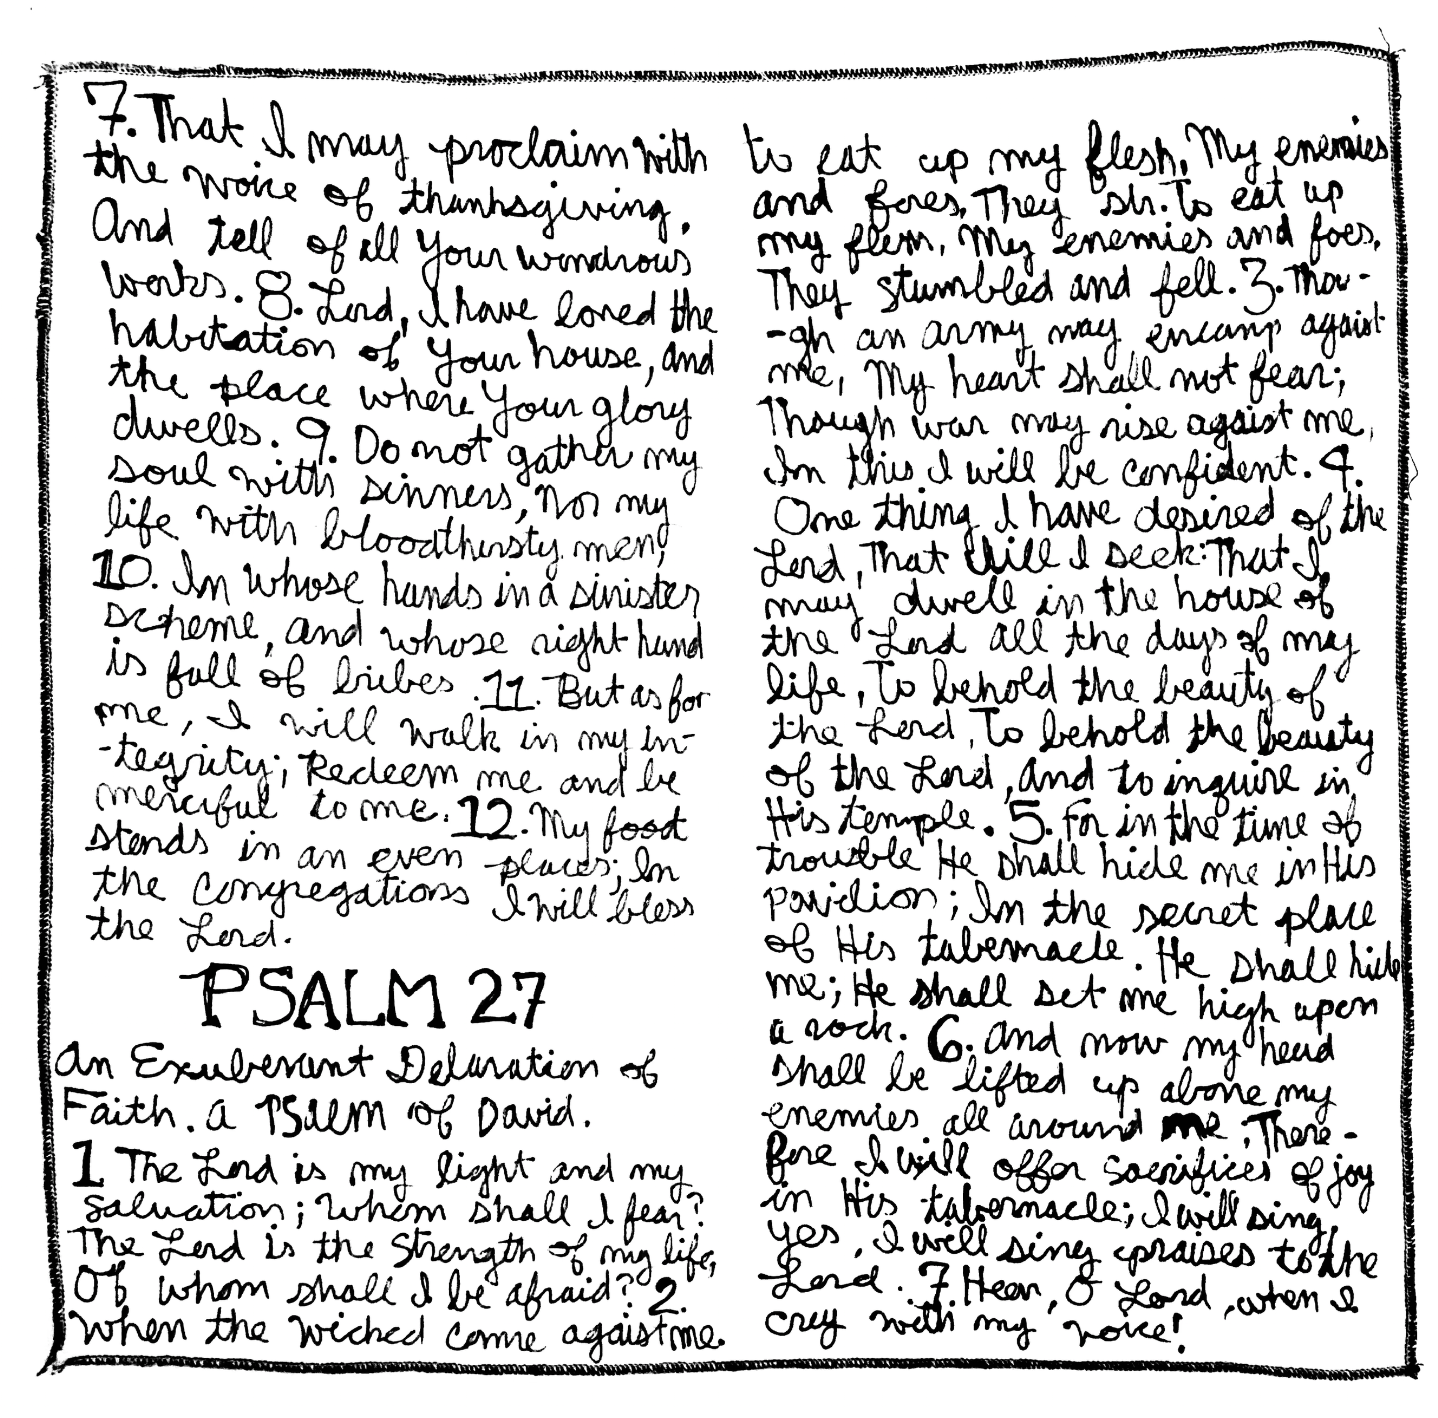 7. That I may proclaim with
the voice of thanksgiving,
And tell of all Your wondrous
works. 8. Lord, I have loved the
habitation of Your house, and
the place where Your glory
dwells. 9. Do not gather my
soul with sinners, Nor my
life with bloodthirsty men;
10. In whose hands in a sinister
scheme, and whose right hand
is full of bribes. 11. But as for
me, I will walk in my in-
-tegrity; Redeem me and be
merciful to me. 12. My foot
stands in an even places; In
the congregations I will bless
the Lord.
PSALM 27
An Exuberant Delaration of
Faith. A PSalm of David.
1 The Lord is my light and my
salvation; Whom shall I fear?
The Lord is the strength of my life,
Of whom shall I be afraid? 2.
When the wicked come agaist me.
to eat up my flesh, My enemies
and foes, They str. To eat up
my flesh, My enemies and foes,
They stumbled and fell. 3. Thou-
-gh an army may encamp agaist
me, My heart shall not fear;
Though war may rise agaist me,
In this I will be confident. 4.
One thing I have desired of the
Lord, That Will I seek: That I
may dwell in the house of
the Lord all the days of my
life, To behold the beauty of
the Lord, To behold the beauty
of the Lord, and to inquire in
His temple. 5. For in the time of
trouble He shall hide me in His
pavilion; In the secret place
of His tabernacle. He shall hide
me; He shall set me high upon
a rock. 6. And now my head
shall be lifted up above my
enemies all around me; There-
fore I will offer sacrifices of joy
in His tabernacle; I will sing,
yes, I will sing praises to the
Lord. 7. Hear, O Lord, when I
cry with my voice!